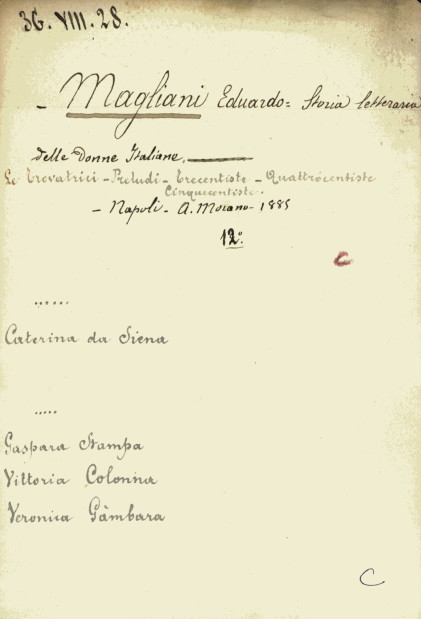 36. VIII. 28.
- Magliani Eduardo = Storia letteraria
delle Donne Italiane.
Le Trovatrici - Preludi - Trecentiste - Quattrocentiste
Cinquecentiste.
- Napoli - A. Morano - 1885
12°.
C
......
Caterina da Siena
.....
Gaspara Stampa
Vittoria Colonna
Veronica Gàmbara
C